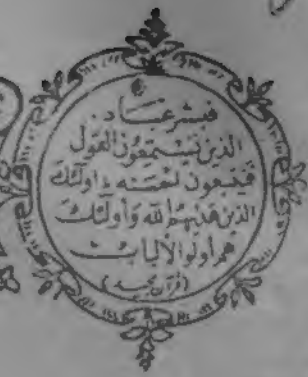 فبشر عباد
الذين يستمعون القول
فيتبعون احسنه اولئك
الذين هدٰىهم الله واولئك
هم اولوا الالباب
(قرآن مجيد)